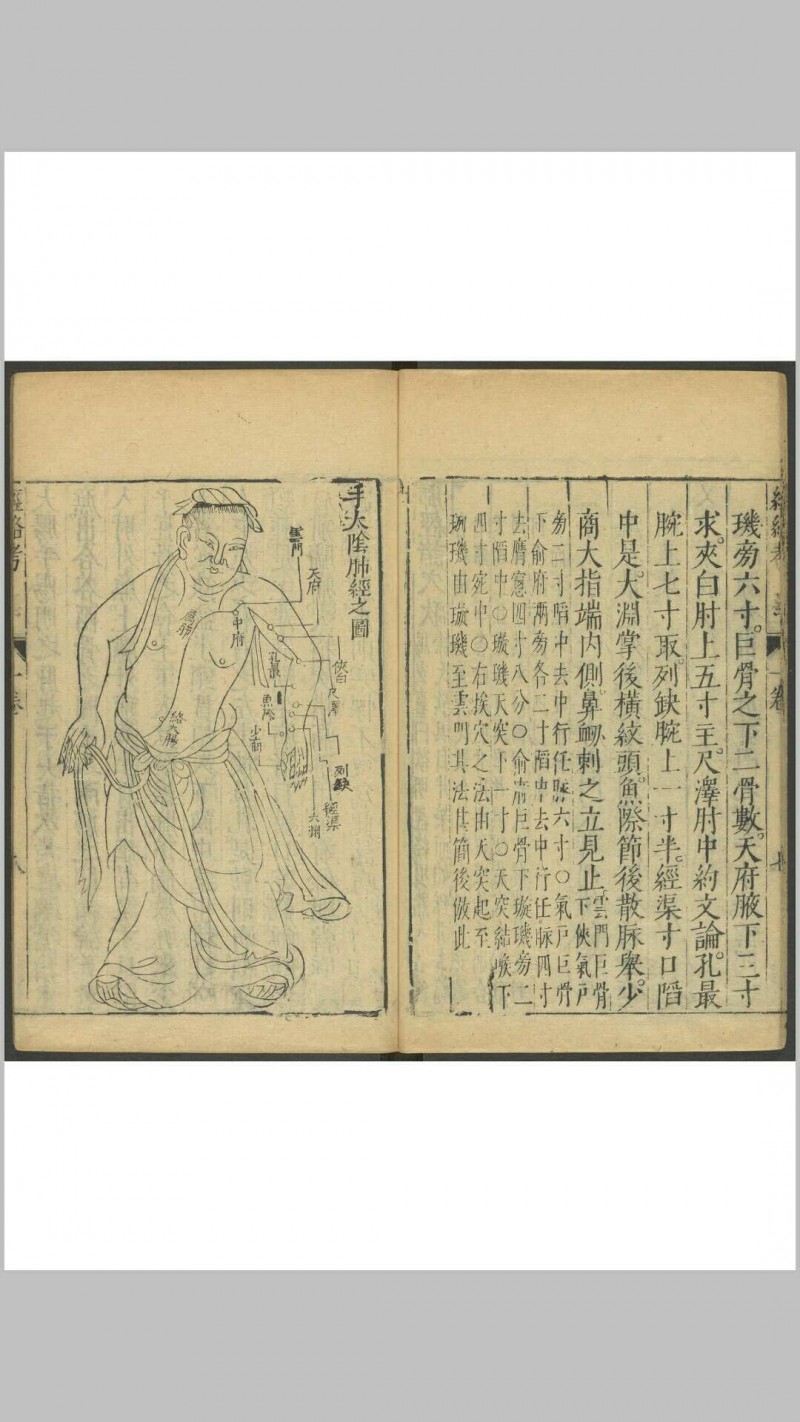 璣旁六寸巨骨之下二骨數天府腋下三寸
求夾白肘上五寸主尺澤肘中約文論孔最
腕上七寸取列缺腕上一寸半經渠寸口陷
中是大淵掌後橫紋頭魚際節後散脉舉少
商大指端內側鼻衂刺之立見止雲門巨骨
下俠氣戶
旁二寸陷中去中行任脉六寸○氣戶巨骨
下俞府兩旁各二寸陷中去中行任脉四寸
去膺窻四寸八分○俞府巨骨下璇璣旁二
寸陷中○璇璣天突下一寸○天突結喉下
四寸宛中○右挨穴之法由天突起至
璇璣由璇璣至雲門其法甚簡後倣此
一卷
手太陰肺經之圖
雲門
天府
俠白
尺澤
中府
孔最
魚際
少商
列缺
經渠
大淵
絡大腸
經絡考
一卷
八